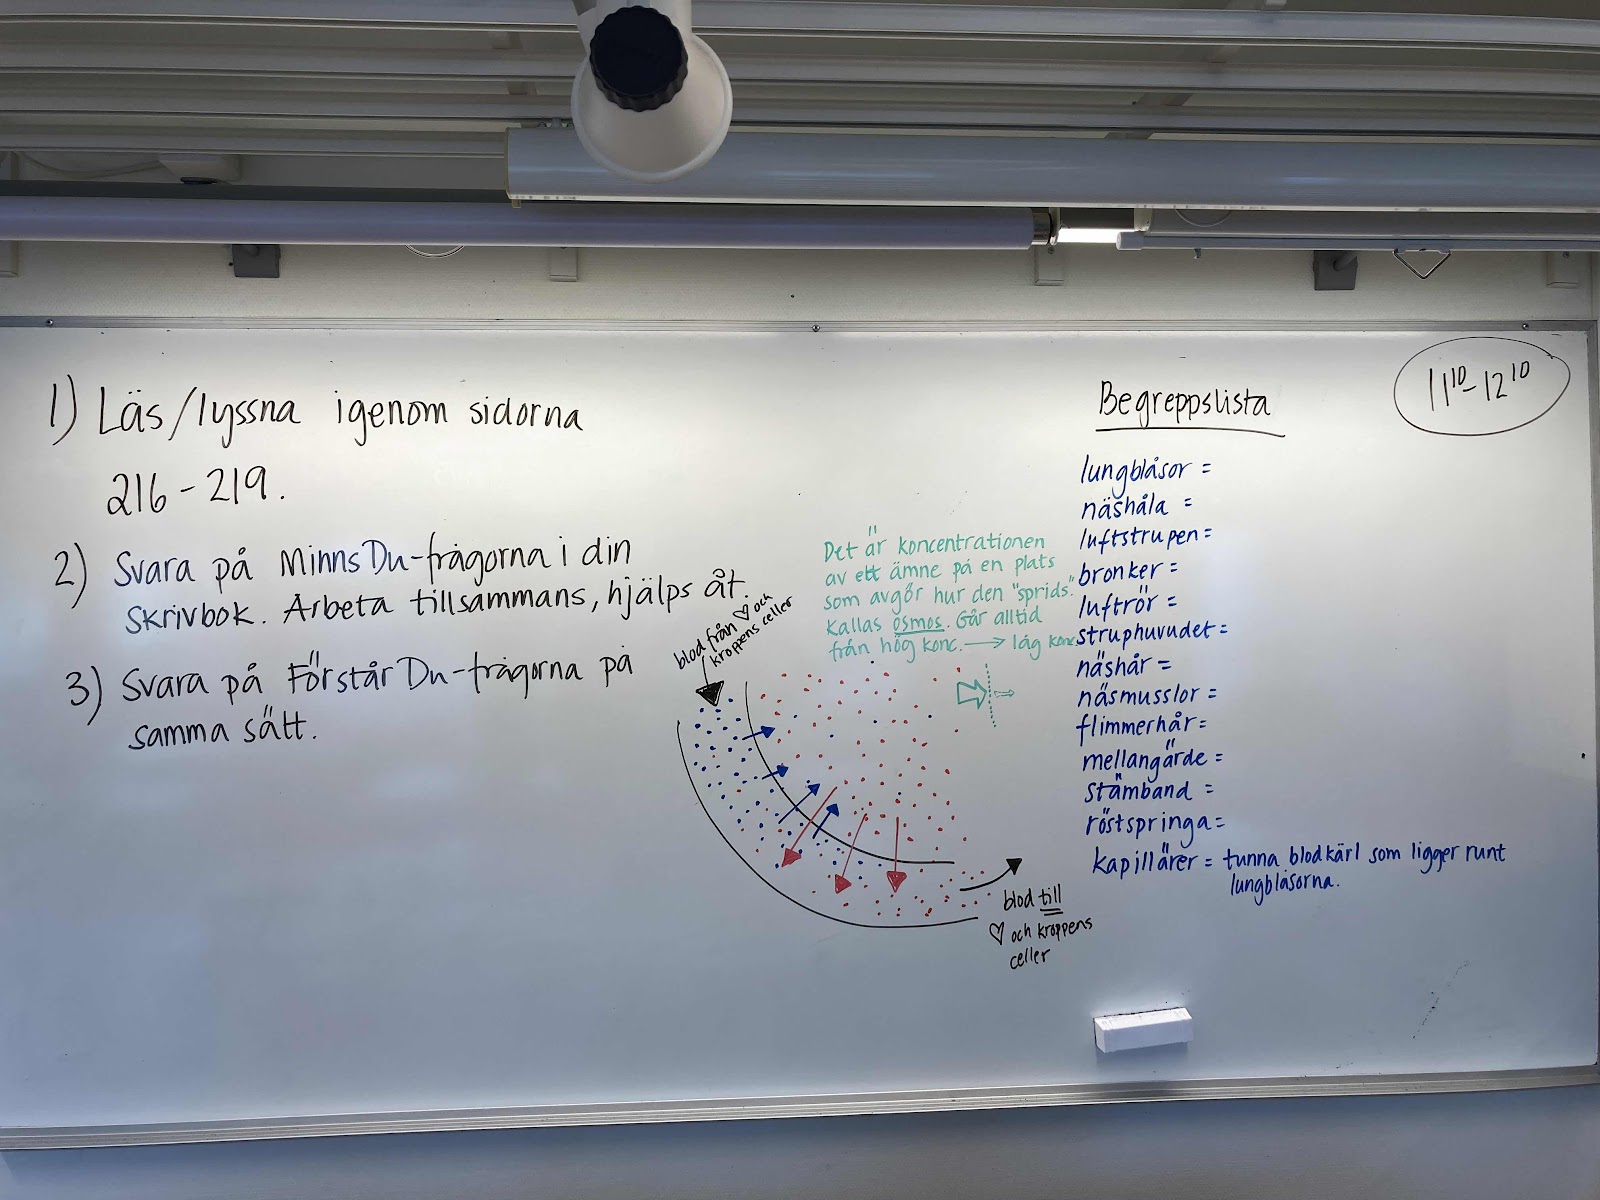 1) Läs/lyssna igenom sidorna
216-219.
2) Svara på MinnsDu-frågorna i din
skrivbok. Arbeta tillsammans, hjälps åt.
3) Svara på FörstårDu-frågorna på
samma sätt.
Det är koncentrationen
av ett ämne på en plats
som avgör hur den "sprids".
Kallas osmos. Går alltid
från hög konc. → låg konc.
blod från ♡ och
kroppens celler
blod till
♡ och kroppens
celler
Begreppslista
11¹⁰-12¹⁰
lungblåsor =
näshåla =
luftstrupen =
bronker =
luftrör =
struphuvudet =
näshår =
näsmusslor =
flimmerhår =
mellangärde =
stämband =
röstspringa =
kapillärer = tunna blodkärl som ligger runt
lungblåsorna.